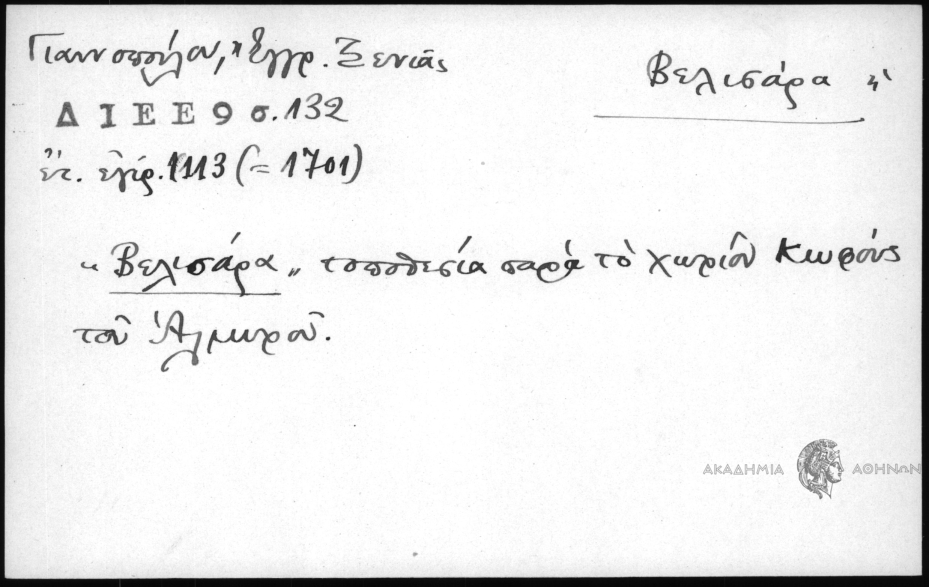 Γιαννοπούλου, Ἔγγρ. Ξενιᾶς
Βελισάρα ἡ
Δ Ι Ε Ε 9 σ. 132
ἔτ. ἐγίρ. 1113 (= 1701)
"Βελισάρα" τοποθεσία παρὰ τὸ χωρίον Κωφοὺς
τοῦ Ἁλμυροῦ.
ΑΚΑΔΗΜΙΑ ΑΘΗΝΩΝ